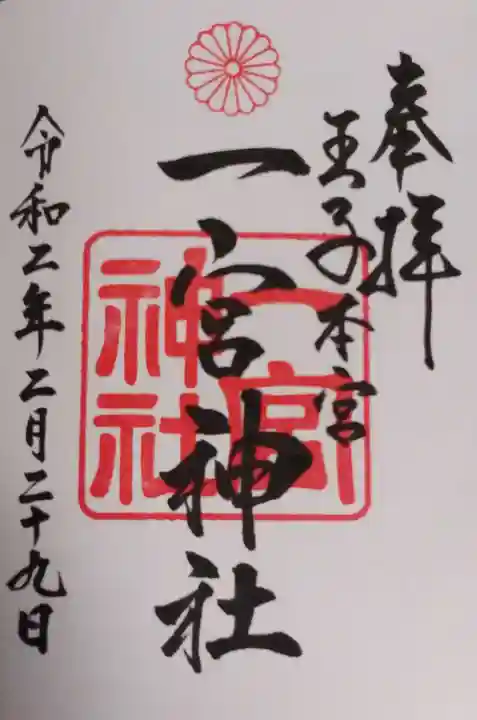 奉拝
王子本宮
一宮神社
一宮
神社
令和二年二月二十九日